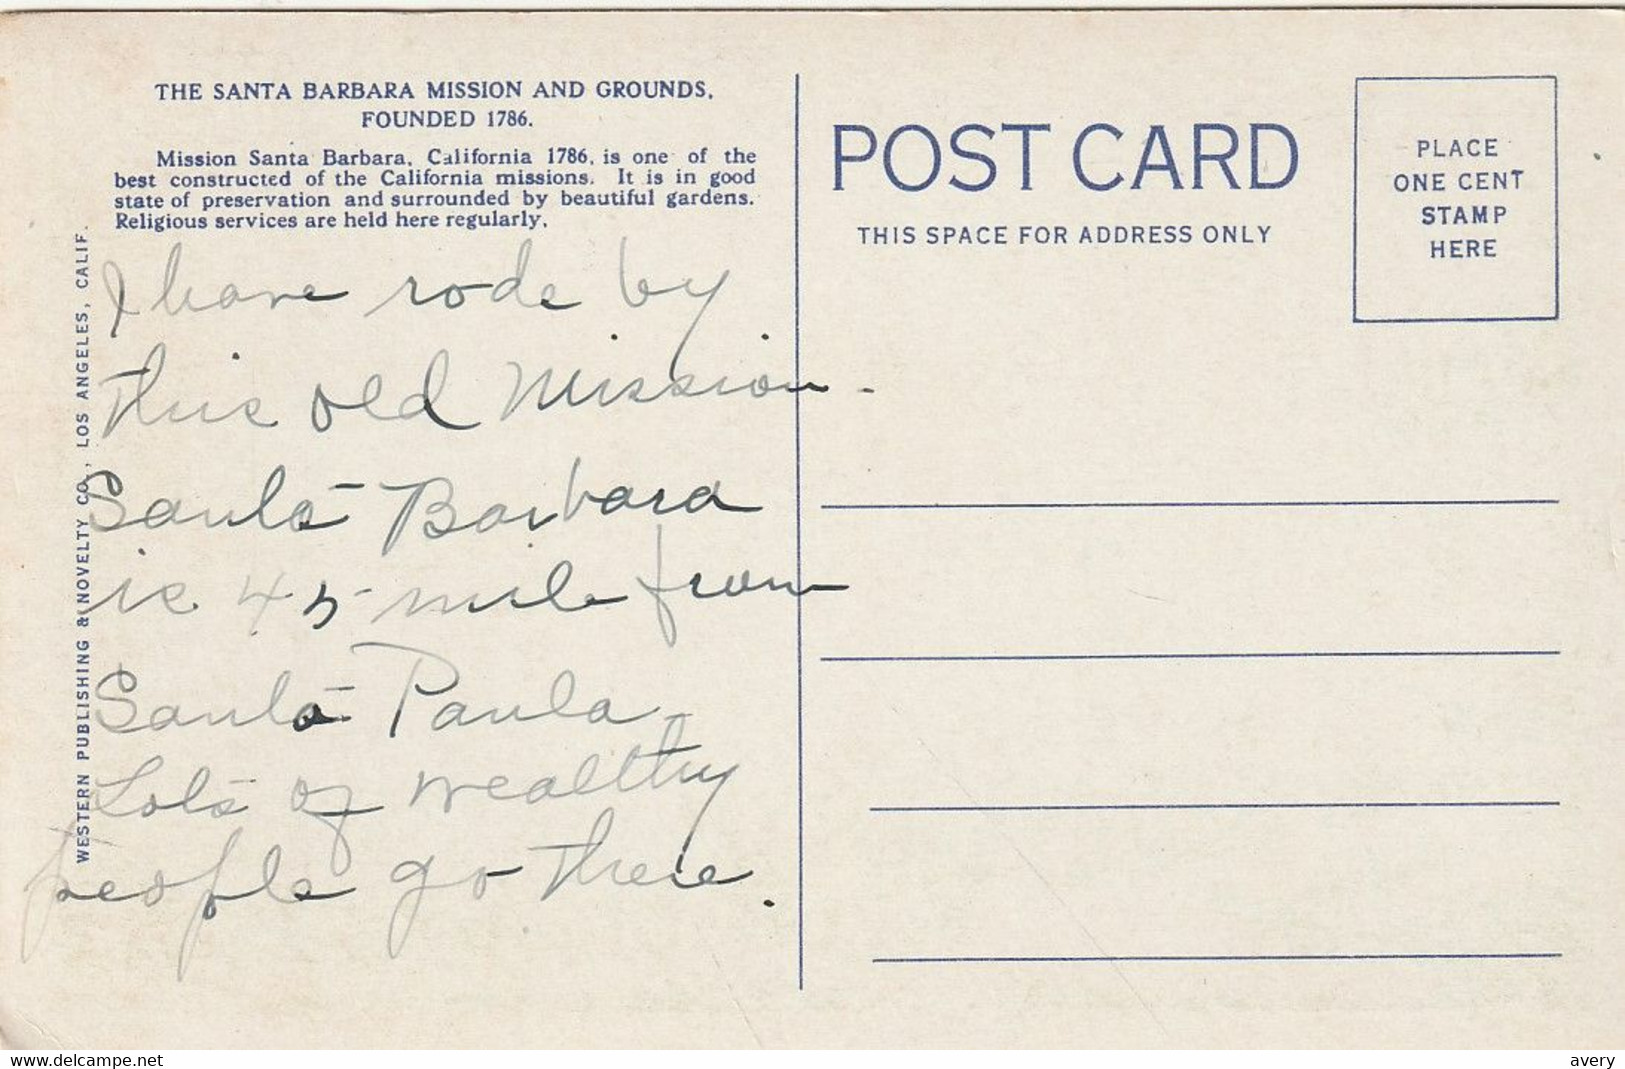 THE SANTA BARBARA MISSION AND GROUNDS,
FOUNDED 1786.
Mission Santa Barbara, California 1786, is one of the
best constructed of the California missions. It is in good
state of preservation and surrounded by beautiful gardens.
Religious services are held here regularly.
I have rode by
this old Mission -
Santa Barbara
is 45 mile from
Santa Paula -
Lots of wealthy
people go there.
WESTERN PUBLISHING & NOVELTY CO., LOS ANGELES, CALIF.
POST CARD
THIS SPACE FOR ADDRESS ONLY
PLACE
ONE CENT
STAMP
HERE
www.delcampe.net
avery